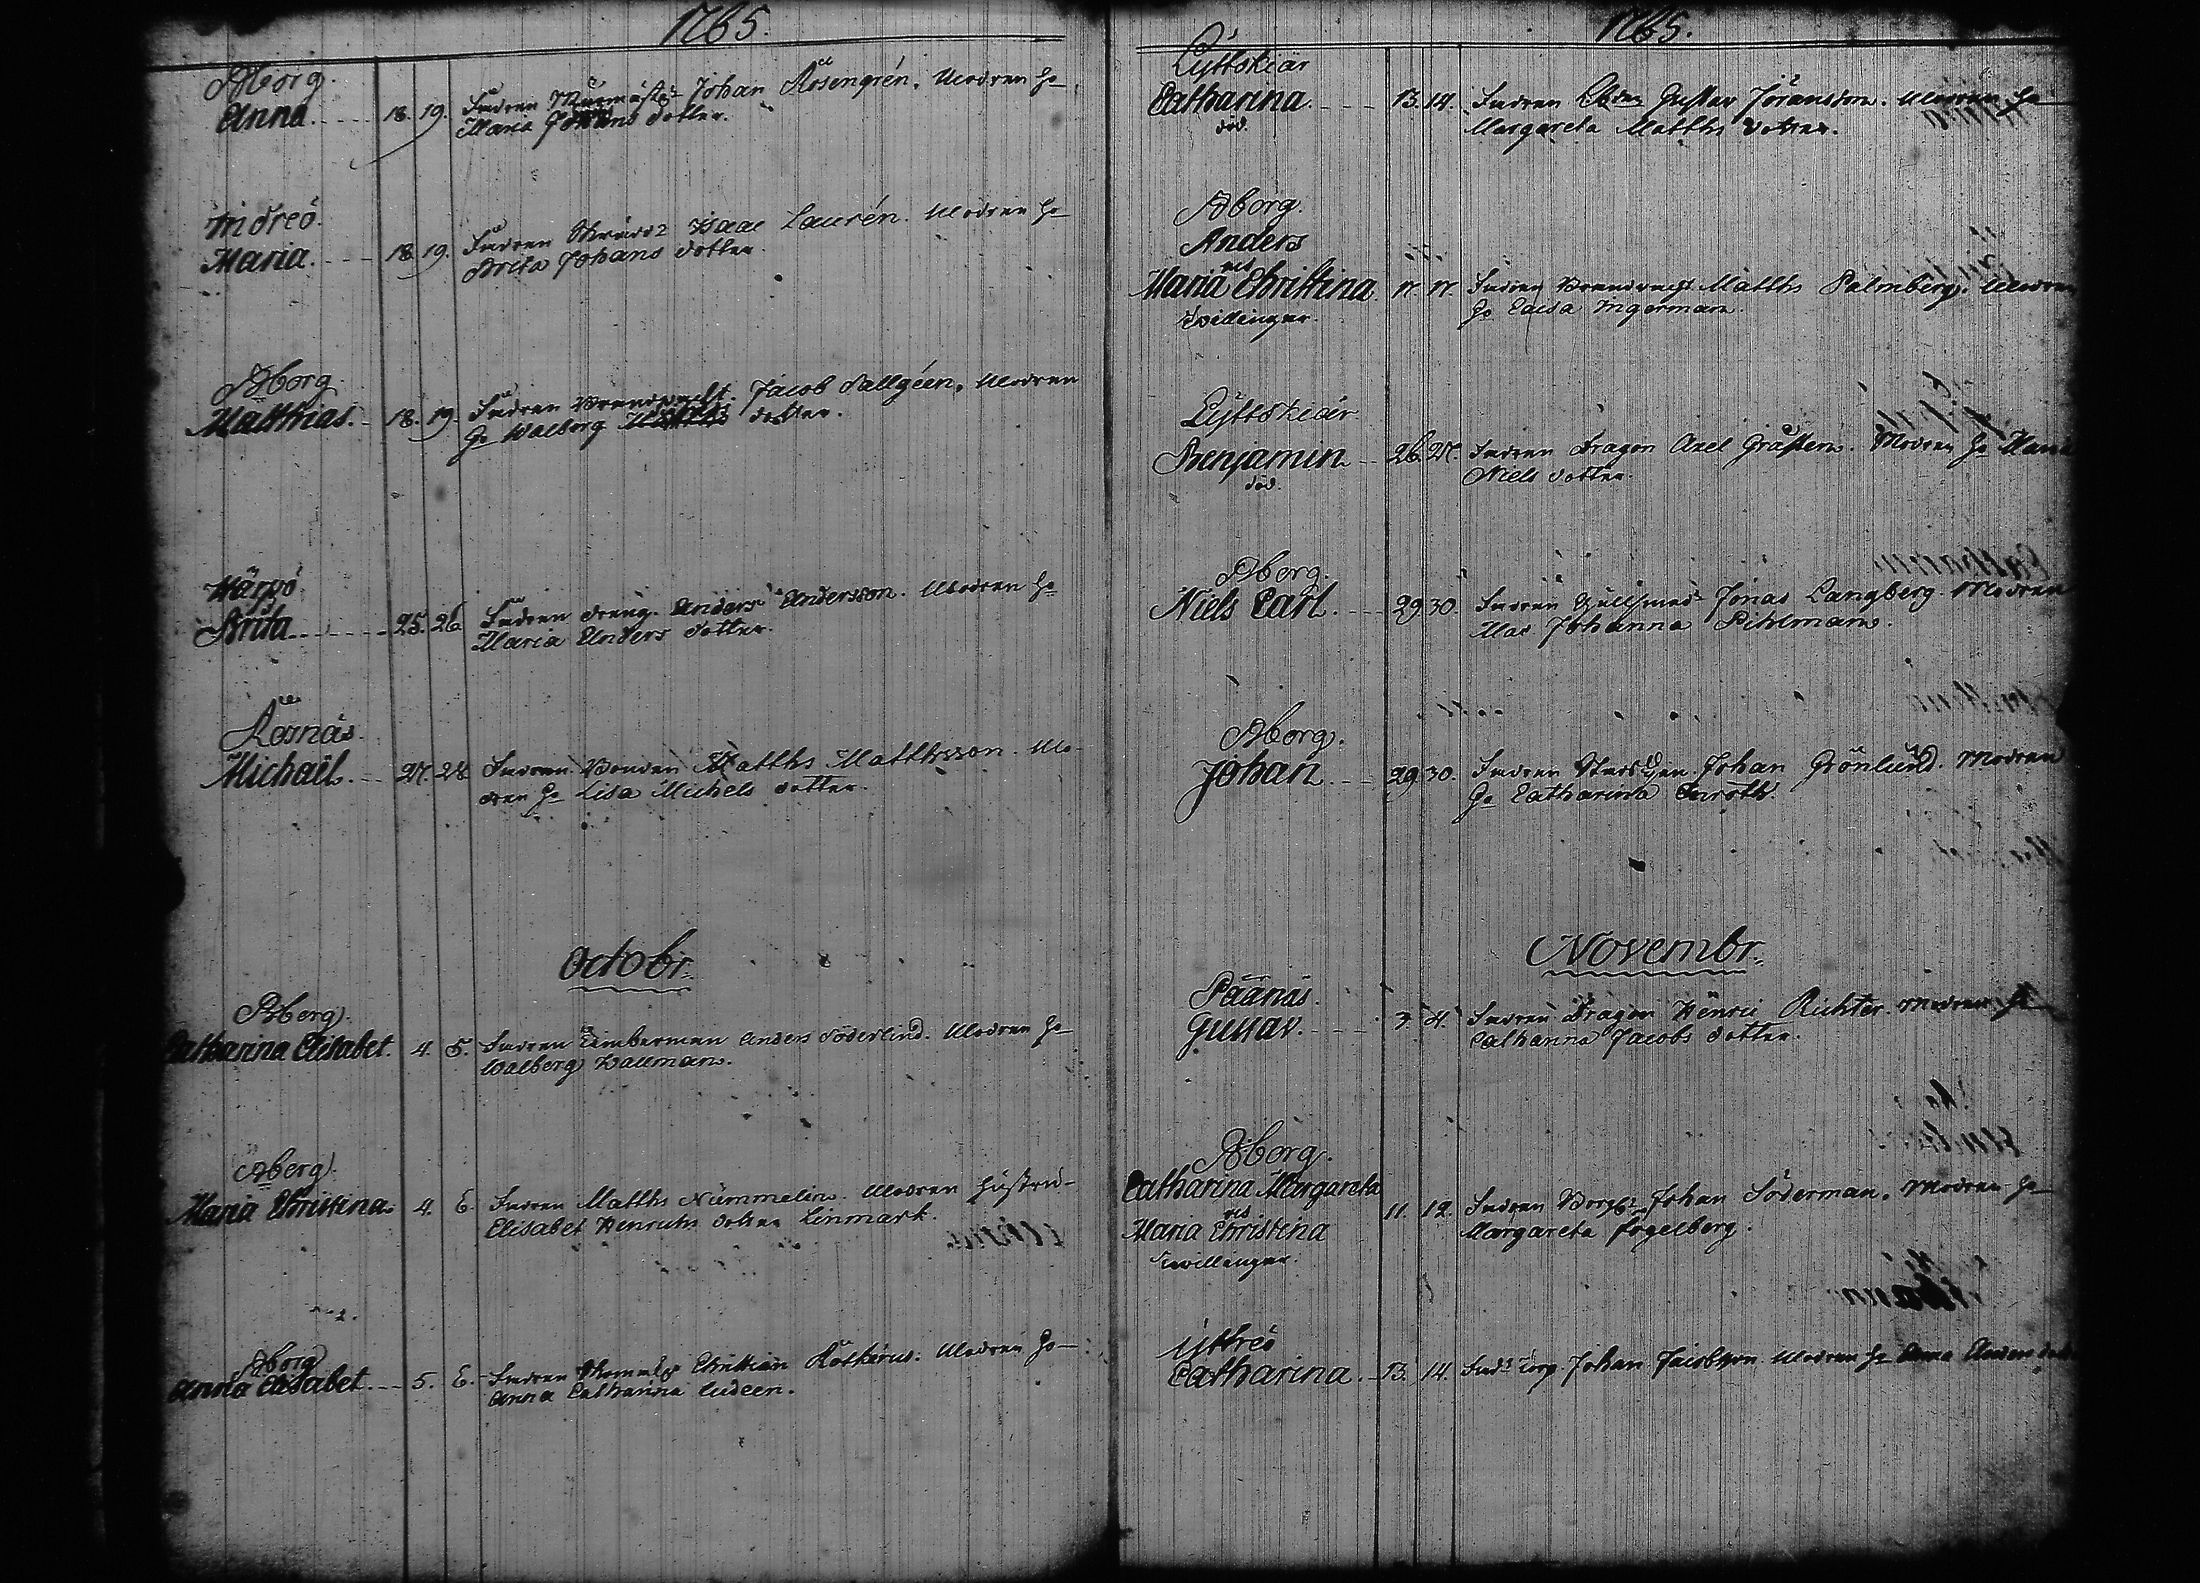 1765.
Bborg.
Anna. 18. 19. Fadren Murmäst Johan Rosengrén. Modren H
Maria Johans dotter.
Indreö.
Maria. 18. 19. Fadren Isaac Laurén. Modren H
Brita Johans dotter
Bborg.
Matthias. 18. 19. Fadren Brandvacht. Jacob Sallgéen. Modren
H Walborg dotter.
Wärpö.
Brita 25. 26 Fadren dreng. Anders Andersson. Modren H
Maria Anders dotter.
Rosnäs.
Michaël. 27. 28 Fadren Bonden Matths Matthsson. Mo-
dren H Lisa Michels dotter.
Octobr.
Bberg.
Catharina Elisabet. 4. 5. Fadren Timberman Anders Söderlind. Modren H
Walberg Hallman.
Bberg.
Maria Christina. 4. 6. Fadren Matths Nummelin. Modren Hustru
Elisabet Henrichs dotter Linmark.
Bborg
Anna Elisabet. 5. 6. Fadren Christian Rothérus. Modren H
Anna Catharina Lideen.
1765.
Lyttskiär
Catharina. 13. 14. Fadren Gustav Jöransson. Modren H
död. Margareta Matths dotter.
Bborg.
Anders
och
Maria Christina 17. 17. Fadren Brandvacht Matths Palmberg. Modren
Tvillingar. H Caisa Ingerman.
Lyttskiär
Benjamin 26. 27. Fadren Dragon Axel Gråsten. Modren H Maria
död. Niels dotter.
Bberg.
Niels Carl. 29 30. Fadren Jonas Langberg. Modren
Mad Johanna Pihlman.
Bborg.
Johan 29 30. Fadren Johan Grönlund. Modren
H Catharina Enroth.
Novembr.
Päänäs.
Gustav. 3. 4. Fadren Dragon Henric Richter. Modren H
Catharina Jacobs dotter.
Bborg.
Catharina Margareta
och 11. 12. Fadren Borg Johan Söderman. Modren H
Maria Christina Margareta Fogelberg.
Tvillingar.
Yttreö
Catharina. 13. 14. Fad Torp. Johan Jacobsson. Modren H Anna Anders